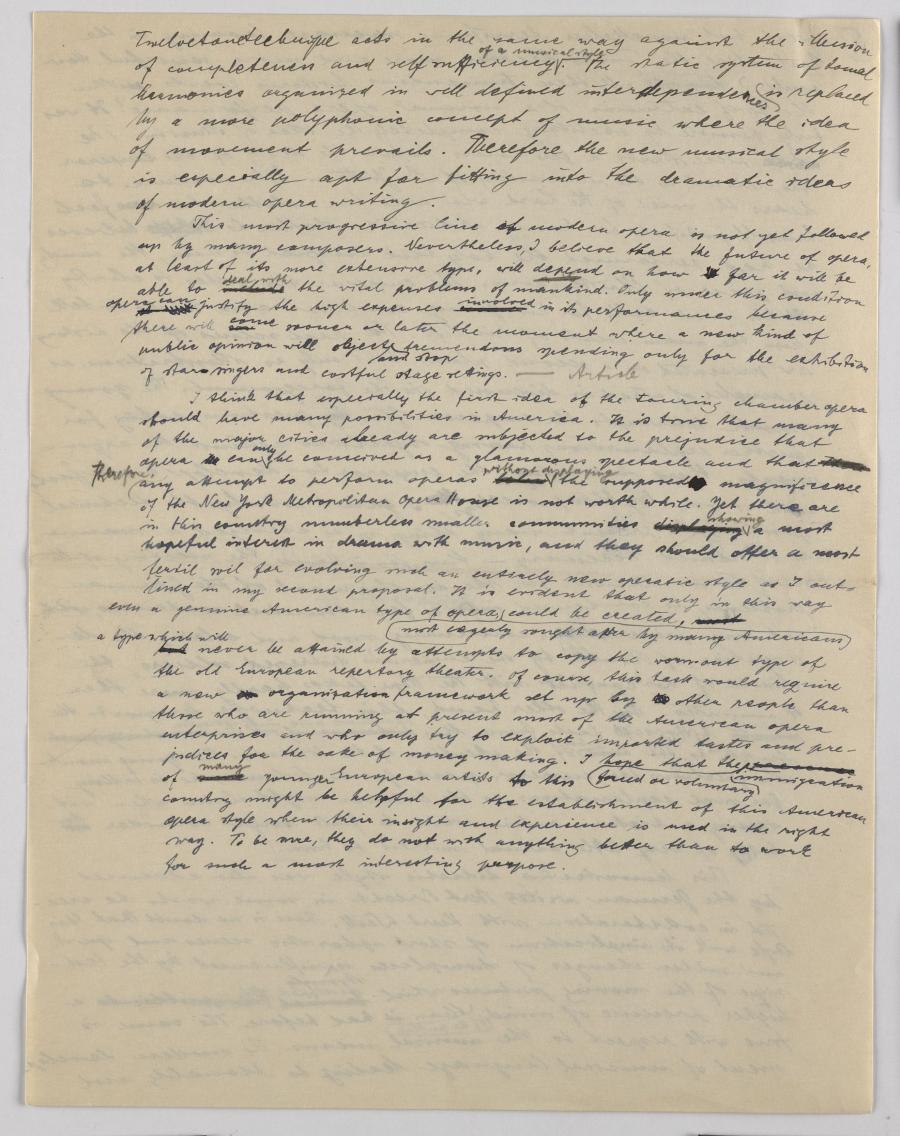 Twelvetonetechnique acts in the same way against the illusion
of a musical style
of completeness and selfsufficiency. The static system of tonal
harmonics organized in well defined interdependences is replaced
by a more polyphonic concept of music where the idea
of movement prevails. Therefore the new musical style
is especially apt for fitting into the dramatic ideas
of modern opera writing.
This most progressive line of modern opera is not yet followed
up by many composers. Nevertheless, I believe that the future of opera,
at least of its more extensive type, will depend on how far it will be
deal with
able to the vital problems of mankind. Only under this condition
opera can justify the high expenses involved in its performances because
there will come sooner or later the moment where a new kind of
public opinion will object tremendous spending only for the exhibition
and shop
of star singers and costful stage settings. — Article
I think that especially the first idea of the touring chamber opera
should have many possibilities in America. It is true that many
of the major cities already are subjected to the prejudice that
only
opera can be conceived as a glamorous spectacle and that
therefore without displaying
any attempt to perform operas the supposed magnificence
of the New York Metropolitan Opera House is not worth while. Yet there are
showing
in this country numberless smaller communities displaying a most
hopeful interest in drama with music, and they should offer a most
fertil soil for evolving such an entirely new operatic style as I out-
lined in my second proposal. It is evident that only in this way
even a genuine American type of opera, could be created,
most eagerly sought after by many Americans
a type which will
but never be attained by attempts to copy the wornout type of
the old European repertory theater. Of course, this task would require
a new organisation framework set up by other people than
those who are running at present most of the American opera
enterprises and who only try to exploit imported tastes and pre-
judices for the sake of money making. I hope that the
many forced or voluntary immigration
of younger European artists to this
country might be helpful for the establishment of this American
opera style when their insight and experience is used in the right
way. To be sure, they do not wish anything better than to work
for such a most interesting purpose.